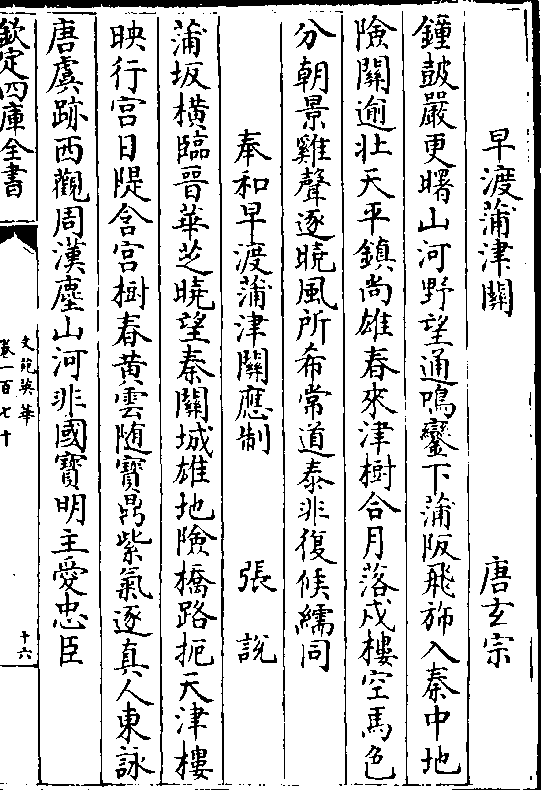 早渡蒲津關 唐玄宗
鐘鼓嚴更曙山河野望通鳴鑾下蒲阪飛斾入秦中地
險關逾壯天平鎮尚雄春來津樹合月落戍樓空馬色
分朝景雞聲逐曉風所希常道泰非復候繻同
奉和早渡蒲津關應制 張說
蒲坂橫臨晉華芝曉望秦關城雄地險橋路扼天津樓
映行宮日隄含宮樹春黃雲随寶鼎紫氣逐真人東詠
唐虞跡西觀周漢塵山河非國寶明主愛忠臣
欽定四庫全書
文苑英華
卷一百七十
十六